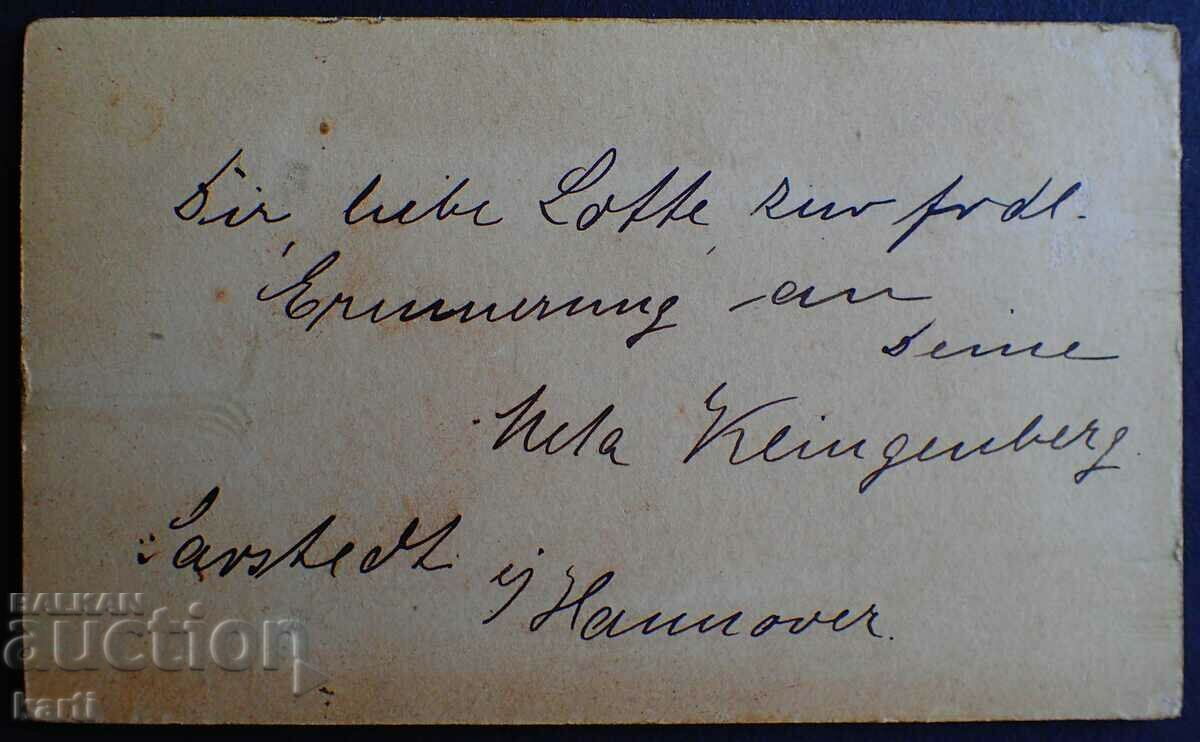 Dir, liebe Lotte, zur frdl.
Erinnerung an
Deine
Meta Klingenberg.
Sarstedt i/Hannover.
BALKAN
auction
karti